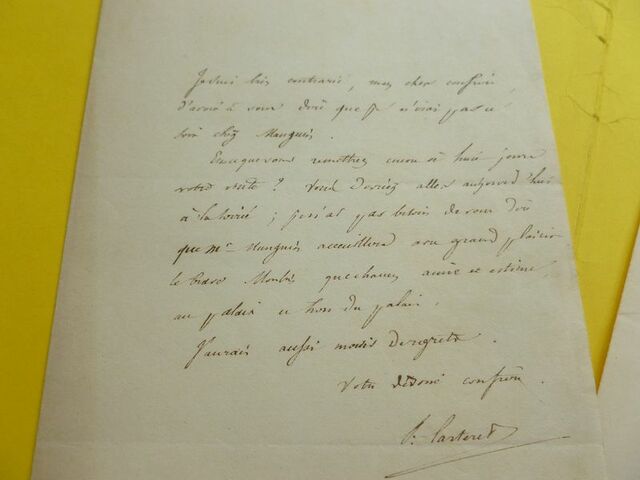 Je suis bien contrarié, mon cher confrère,
d'avoir à vous dire que je n'irai pas ce
soir chez Mauguin.
Est ce que vous remettrez encore à huit jours
votre visite ? Vous devriez aller aujourd'hui
à la soirée ; je n'ai pas besoin de vous dire
que Mr Mauguin accueillera avec grand plaisir
le brave que chacun aime et estime,
au palais et hors du palais.
J'aurais aussi moins de regrets.
Votre dévoué confrère.